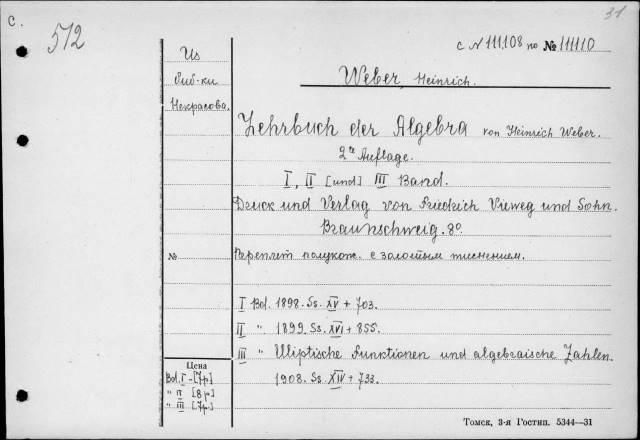 С.
31
572
с N 111.108 по № 111110
Из
биб-ки
Некрасова.
Weber, Heinrich.
Lehrbuch der Algebra von Heinrich Weber.
2te Auflage.
I, II [und] III Band.
Druck und Verlag von Friedrich Vieweg und Sohn.
Braunschweig. 8º.
№
Переплет полукож. с золотым тиснением.
I Bd. 1898. Ss. XV + 703.
II " 1899. Ss. XVI + 855.
III " Elliptische Funktionen und algebraische Zahlen.
1908. Ss. XIV + 733.
Цена
Bd. I - [7р]
" II [8р]
" III [7р]
Томск, 3-я Гостип. 5344—31